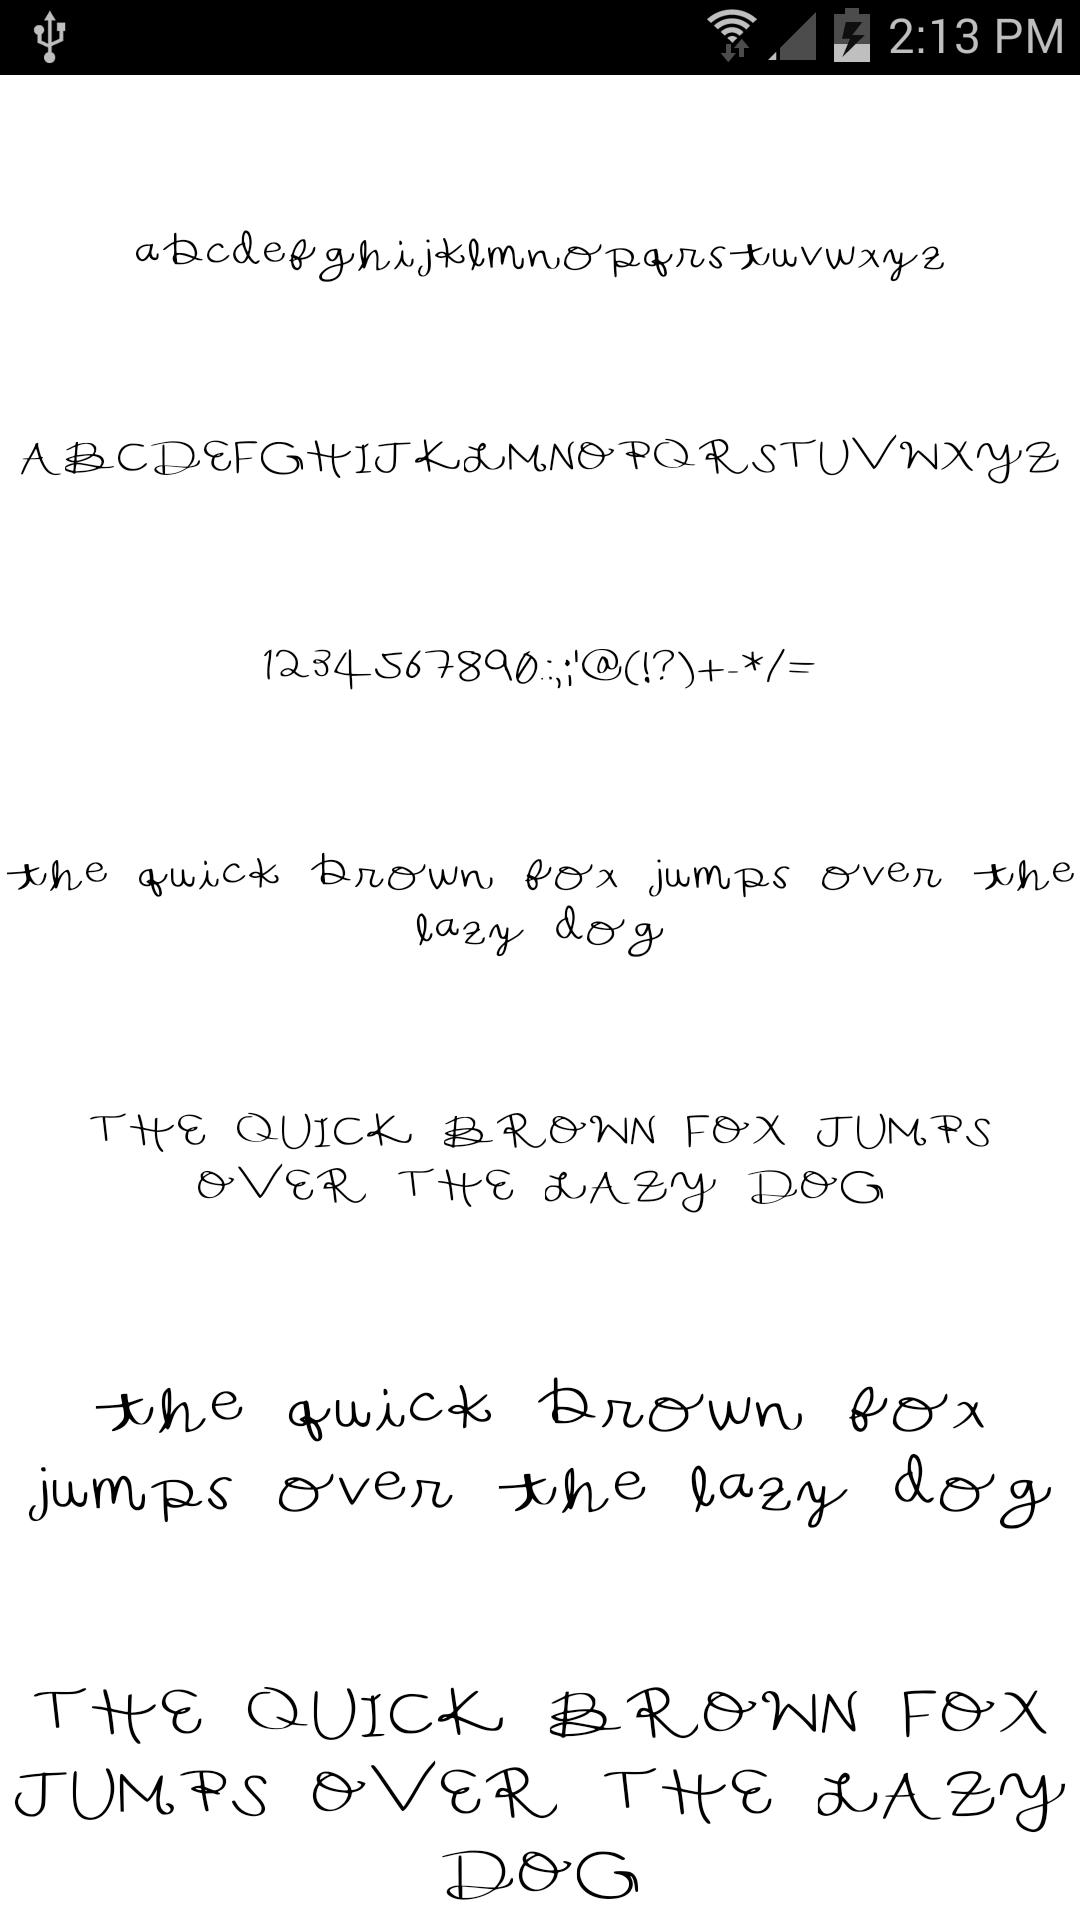 2:13 PM
abcdefghijklmnopqrstuvwxyz
ABCDEFGHIJKLMNOPQRSTUVWXYZ
1234567890.:,;'@(!?)+-*/=
the quick brown fox jumps over the
lazy dog
THE QUICK BROWN FOX JUMPS
OVER THE LAZY DOG
the quick brown fox
jumps over the lazy dog
THE QUICK BROWN FOX
JUMPS OVER THE LAZY
DOG